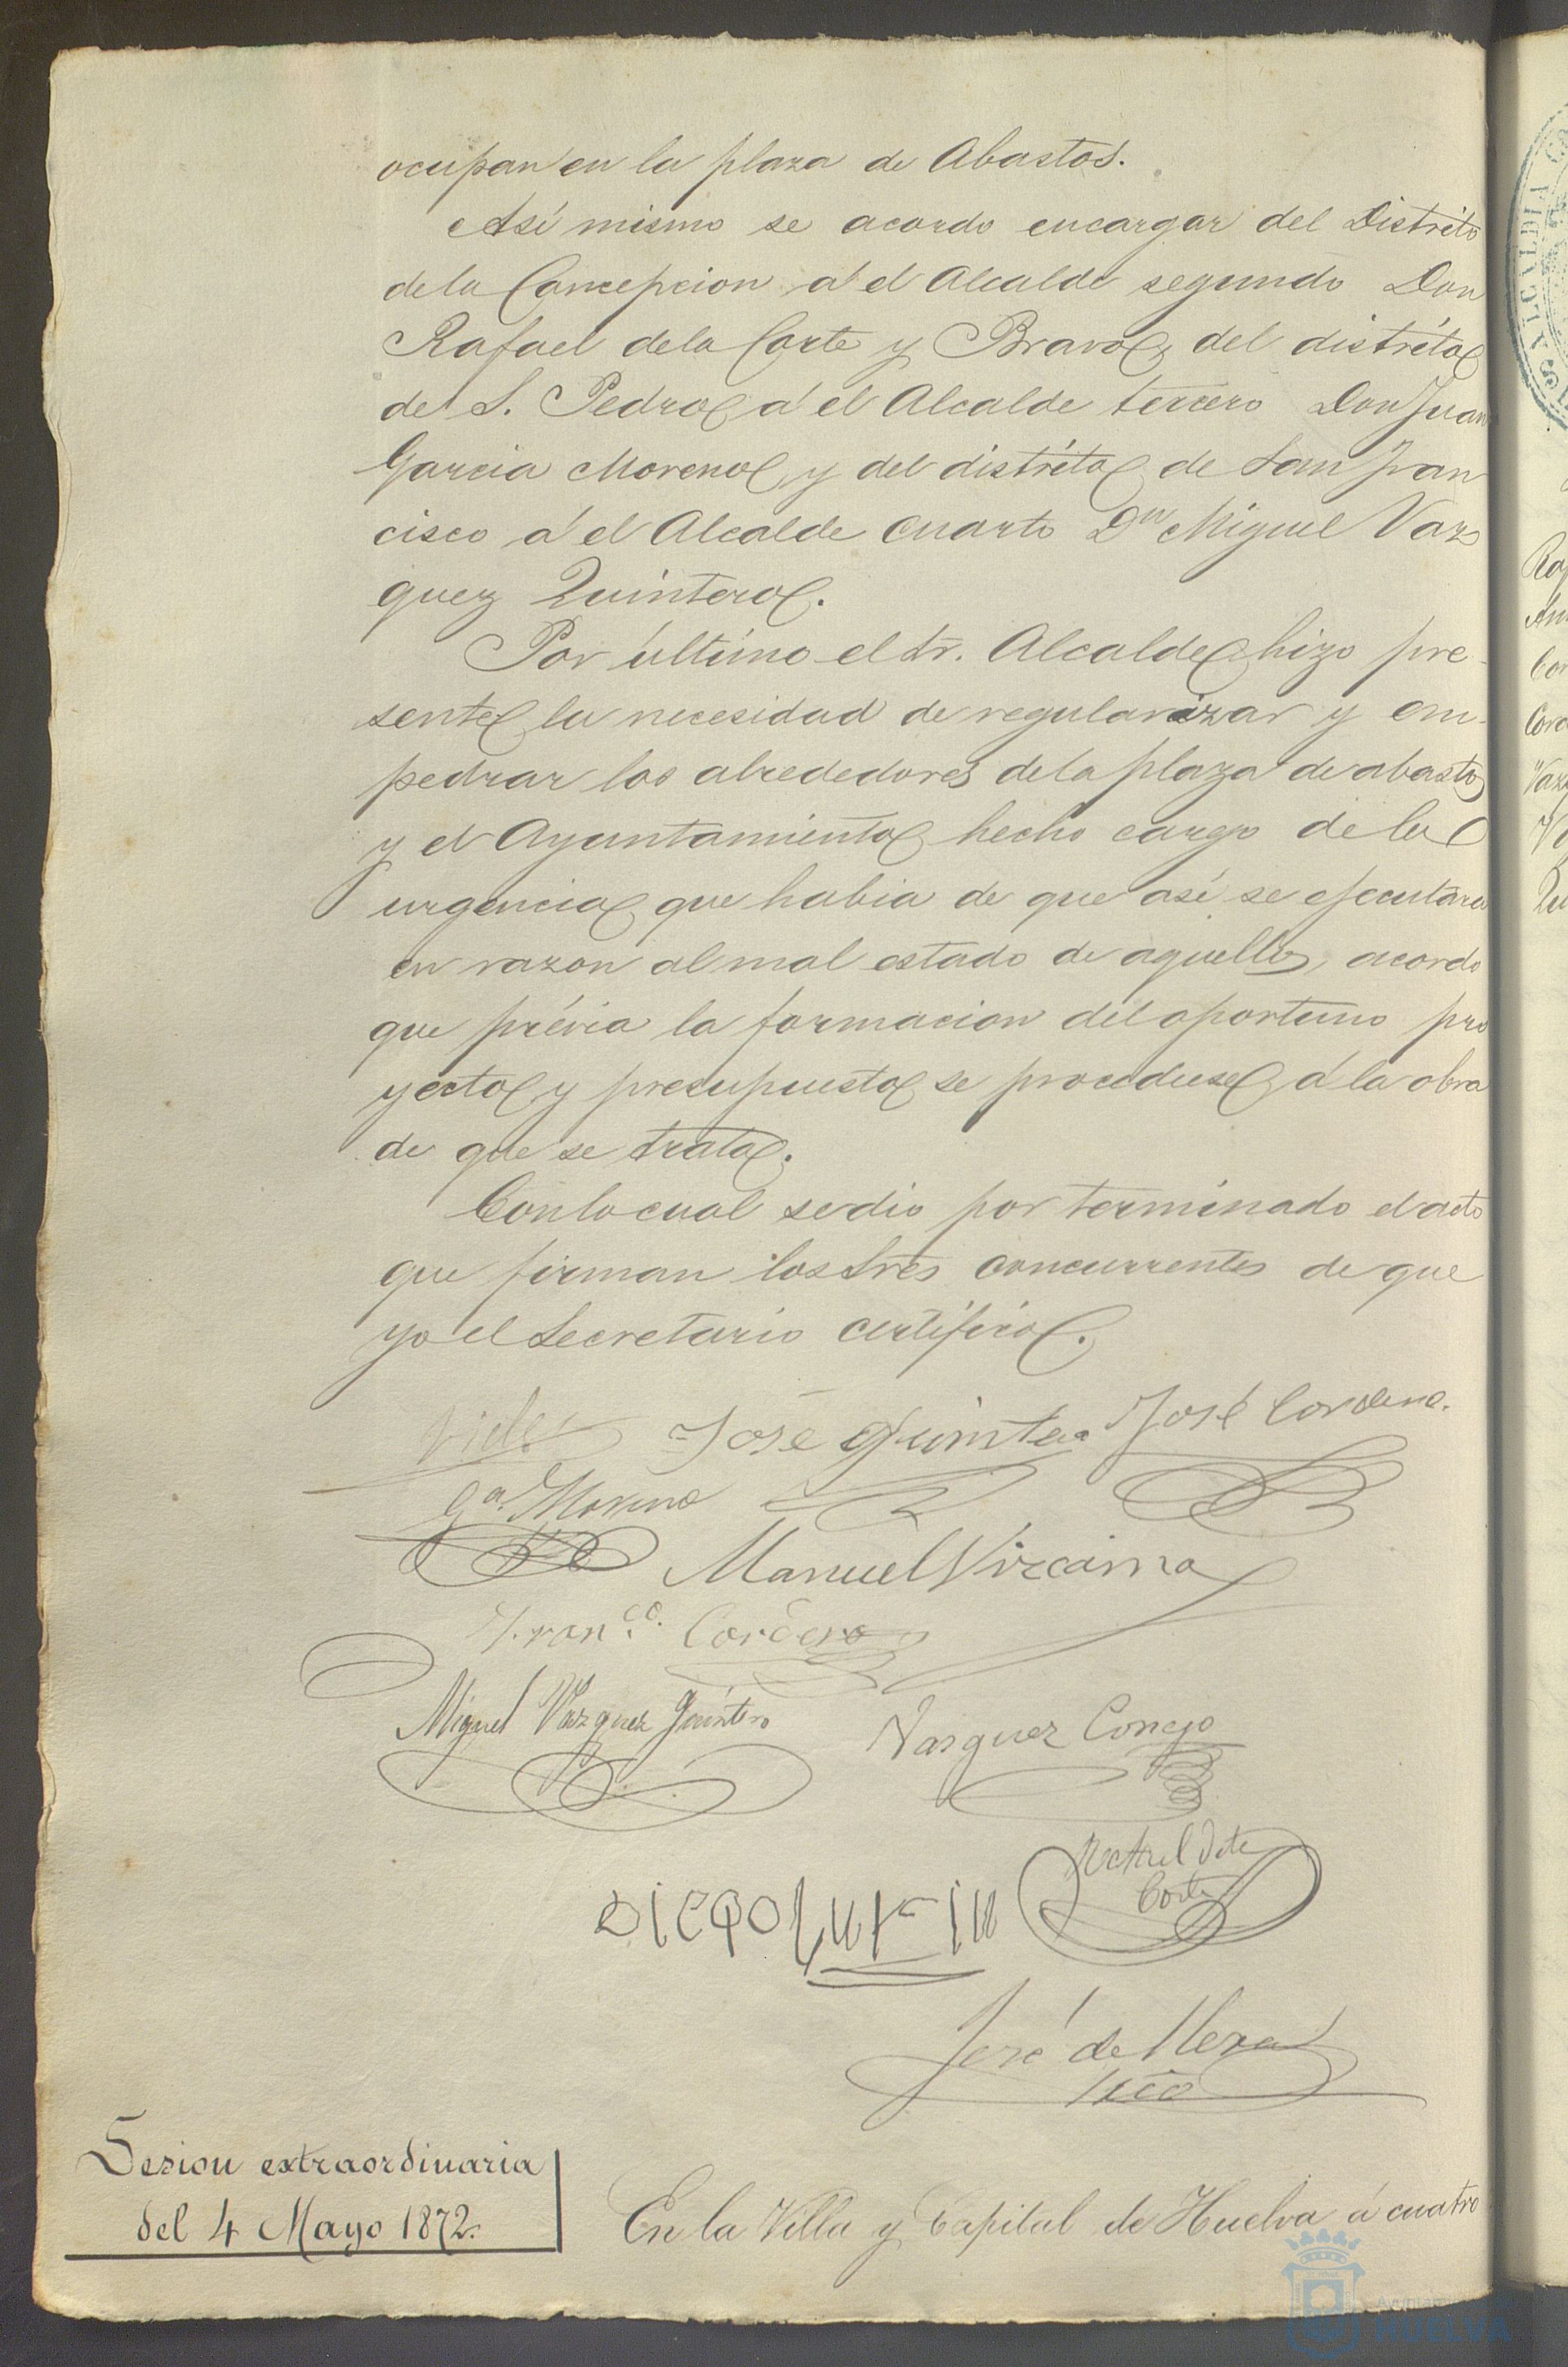 ocupan en la plaza de Abastos.
Asi mismo se acordo encargar del Distrito
de la Concepcion á el Alcalde segundo Don
Rafael de la Corte y Bravo, del distrito
de S. Pedro á el Alcalde tercero Don Juan
Garcia Moreno y del distrito de San Fran
cisco á el Alcalde cuarto Dn Miguel Vaz
quez Quintero.
Por último el Sr. Alcalde hizo pre-
sente la necesidad de regularizar y em-
pedrar los alrededores de la plaza de abastos
y el Ayuntamiento hecho cargo de la
urgencia que habia de que asi se ejecutara
en razon al mal estado de aquellos, acordo
que prévia la formacion del oportuno pro
yecto y presupuesto se procediese á la obra
de que se trata.
Con lo cual se dio por terminado el acto
que firman los Sres concurrentes de que
yo el Secretario certifico.
José Quintero José Cordero.
Ga. Moreno
Manuel Vizcaino
Franco. Cordero
Miguel Vazquez Quintero
Vazquez Conejo
Rafael de la
Corte
DIEGO
José de Mera
Srio
Sesion extraordinaria
del 4 Mayo 1872.
En la Villa y Capital de Huelva á cuatro
ALCALDIA
Ayuntamiento de
HUELVA